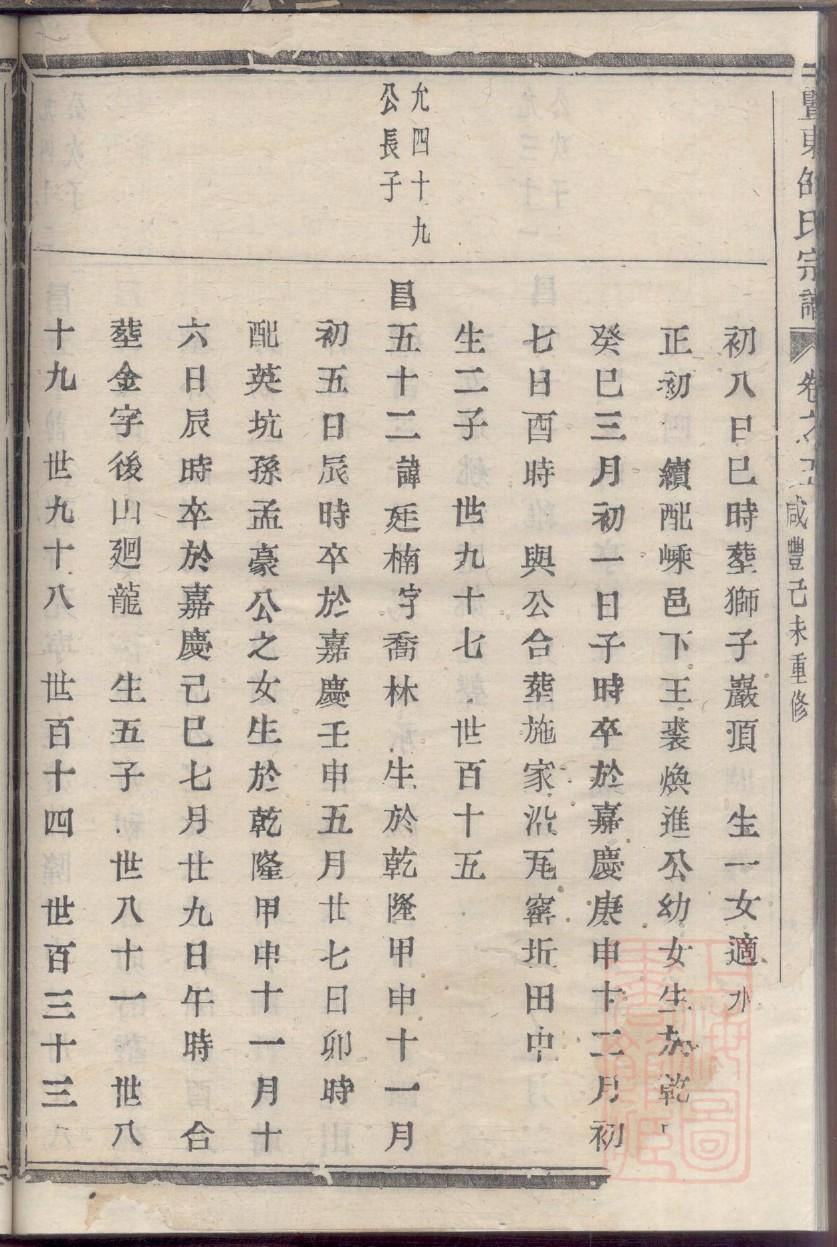 暨東 氏宗譜 卷之五 咸豐己未重修
初八日巳時塟獅子巖頂 生一女適水
正初 續配嵊邑下王裘煥進公幼女生於乾
癸巳三月初一日子時卒於嘉慶庚申十二月初
七日酉時 與公合塟施家沿瓦窰坵田中
生二子 世九十七 世百十五
允四十九
公長子
昌五十二諱廷楠字喬林 生於乾隆甲申十一月
初五日辰時卒於嘉慶壬申五月廿七日卯時
配英坑孫孟豪公之女生於乾隆甲申十一月十
六日辰時卒於嘉慶己巳七月廿九日午時 合
塟金字後山廻龍 生五子 世八十一 世八
十九 世九十八 世百十四 世百三十三